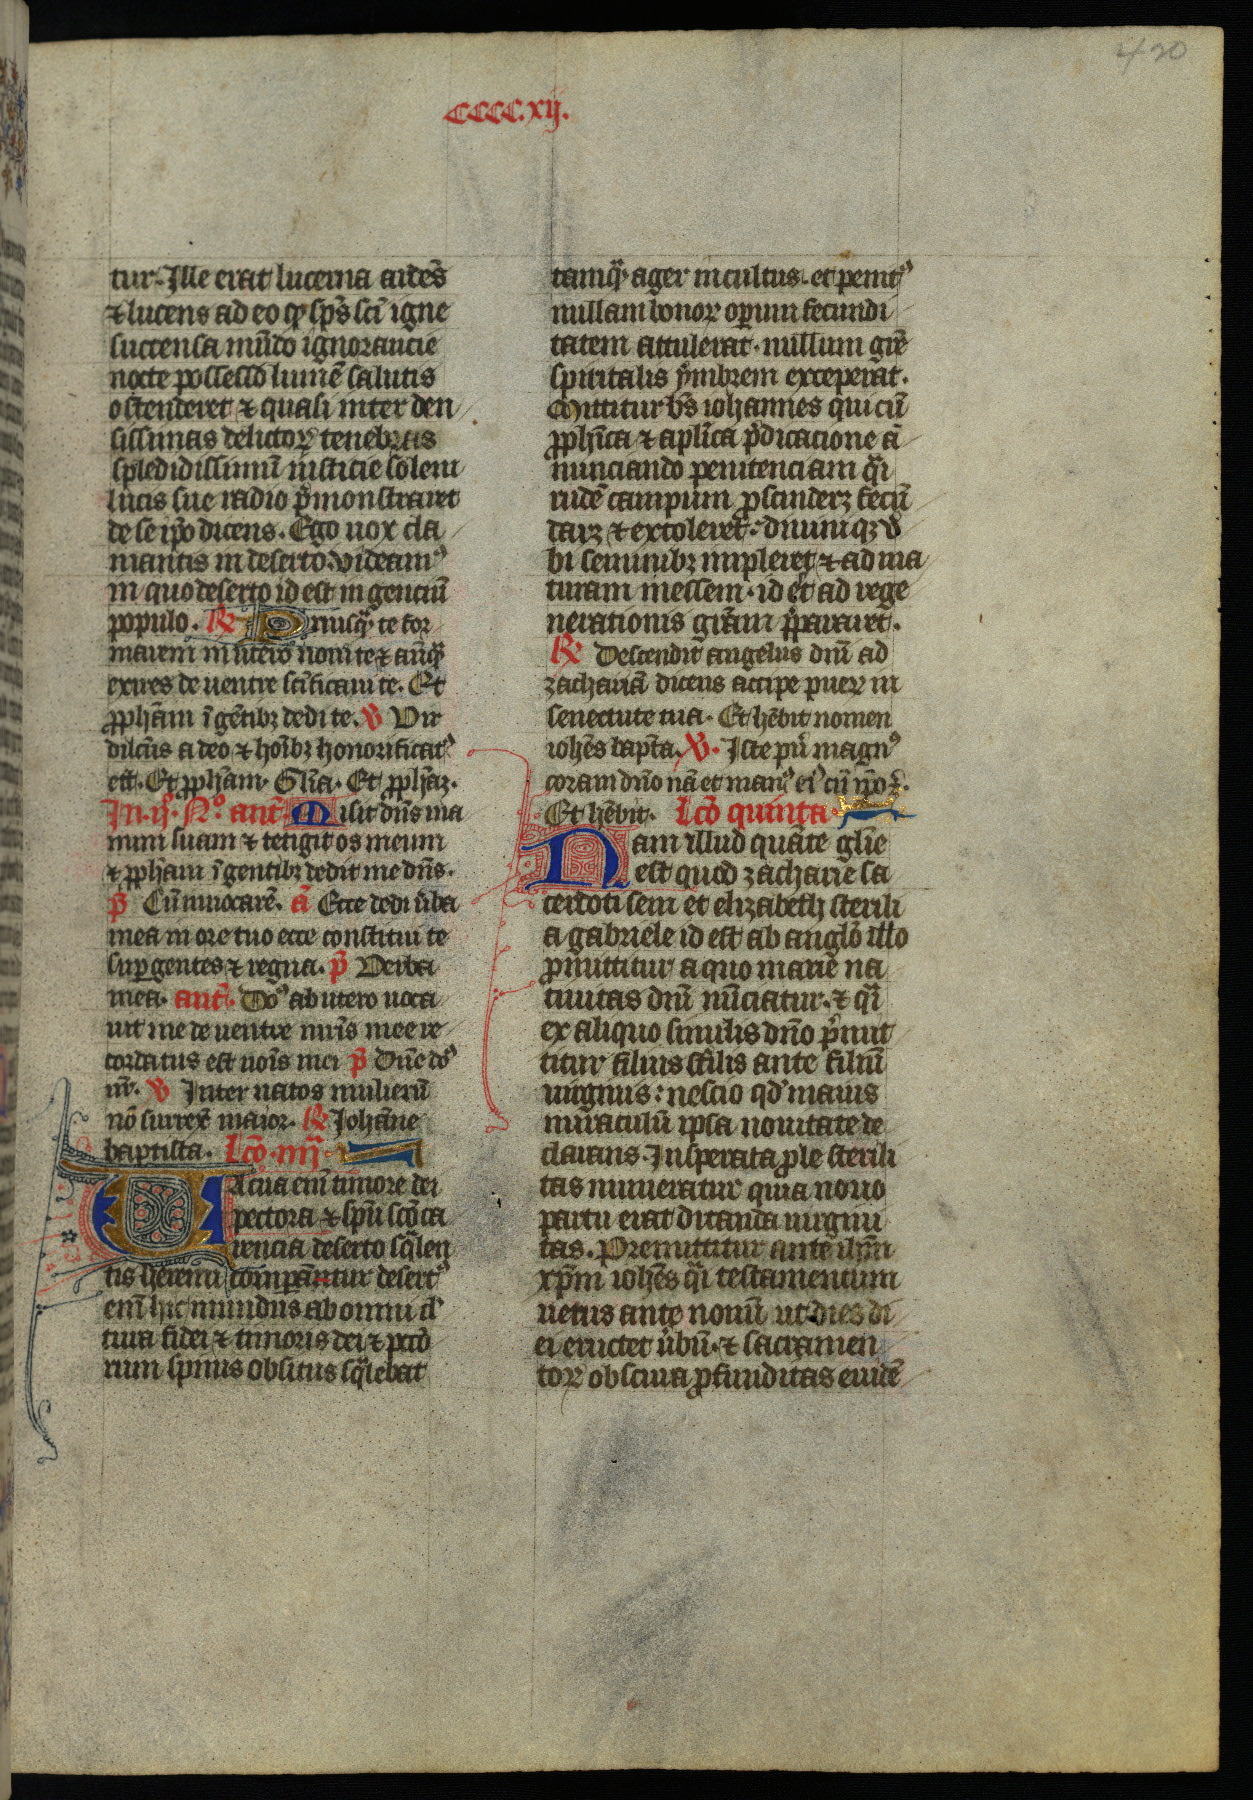 420
CCCC.xij.
tur. Ille erat lucerna ardēs
⁊ lucens ad eo qꝫ sp̄s sc̄i igne
succensa mūdo ignorancie
nocte possesso lumē salutis
ostenderet ⁊ quasi inter den
sissimas delictoꝝ tenebras
splēdidissimū iusticie solem
lucis sue radio p̄monstraret
de se ip̄o dicens. Ego uox cla
mantis in deserto. videam⁹
in quo deserto id est in gentiū
populo. ℟ Priusq̄ te for
marem in utero noui te ⁊ anq̄
exires de uentre sc̄ificaui te. Et
ꝓph̄am ī gētibꝫ dedi te. ℣ Vir
dilc̄us a deo ⁊ hoībꝫ honorificat⁹
est. Et ꝓph̄am. Gl̄ia. Et ꝓph̄aꝫ.
In .ij°. N°. ant̄. Misit dn̄s ma
num suam ⁊ tetigit os meum
⁊ ꝓph̄am ī gentibꝫ dedit me dn̄s.
p̄ Cū inuocarē. ā Ecce dedi ūba
mea in ore tuo ecce constitui te
suꝑ gentes ⁊ regna. p̄ Verba
mea. ant̄. Do⁹ ab utero uoca
uit me de uentre mr̄is mee re
cordatus est noīs mei p̄ Dn̄e do⁹
nr̄. ℣ Inter natos mulierū
nō surrex̄ maior. ℟ Johāne
baptista. Lc̄o .iiij.
Uacua em̄ timore dei
pectora ⁊ sp̄u sc̄o ca
rencia deserto sq̄len
tis heremi comparantur desert⁹
em̄ hic mundus ab omni cl
tura fidei ⁊ timoris dei ⁊ pcc̄o
rum spinis obsitus sq̄lebat
tamq̄ ager incultus. et penit⁹
nullam bonoꝝ oꝑum fecundi
tatem attulerat. nullum grē
spiritalis ymbrem exceperat.
Mittitur bs̄ iohannes qui cū
ꝓph̄ica ⁊ apl̄ica p̄dicacione ā
nunciando penitenciam q̄i
rudē campum ꝓscinderꝫ fecū
darꝫ ⁊ extoleret. diuiniqꝫ ū
bi seminibꝫ impleret ⁊ ad ma
turam messem. id et̄ ad rege
nerationis grām p̄pararet.
℟ Descendit angelus dn̄i ad
zachariā dicens accipe pueꝝ in
senectute tua. Et hēbit nomen
ioh̄es bapt̄a. ℣. Iste pū̄ magn⁹
coram dn̄o nā et man⁹ ei⁹ cū ip̄o ē.
Et hēbit. Lc̄o quinta
Nam illud quāte glīe
est quod zacharie sa
cerdoti seni et elizabeth sterili
a gabriele id est ab anglo illo
ꝓmittitur a quo marie na
tiuitas dn̄i nūciatur. ⁊ q̄i
ex aliquo similis dn̄o p̄mit
titur filius sterilis ante filiū
uirginis: nescio qd̄ maius
miraculū ipsa nouitate de
clarans. Insperata ꝓle sterili
tas muneratur quia nouo
partu erat ditanda uirgini
tas. Premittitur ante ih̄m
xp̄m ioh̄es q̄i testamentum
uetus ante nouū ut dies di
ei eructet ūbū. ⁊ sacramen
toꝝ obscura ꝓfunditas euidē